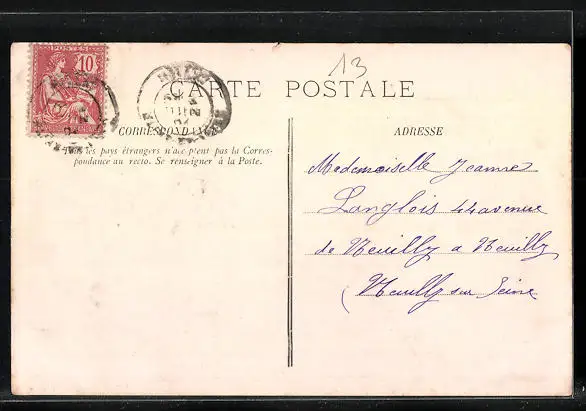 POSTES
10
13
CARTE POSTALE
CORRESPONDANCE
Tous les pays étrangers n'acceptent pas la Corres-
pondance au recto. Se renseigner à la Poste.
ADRESSE
Mademoiselle Jeanne
Langlois 44 avenue
de Neuilly a Neuilly
(Neuilly sur Seine